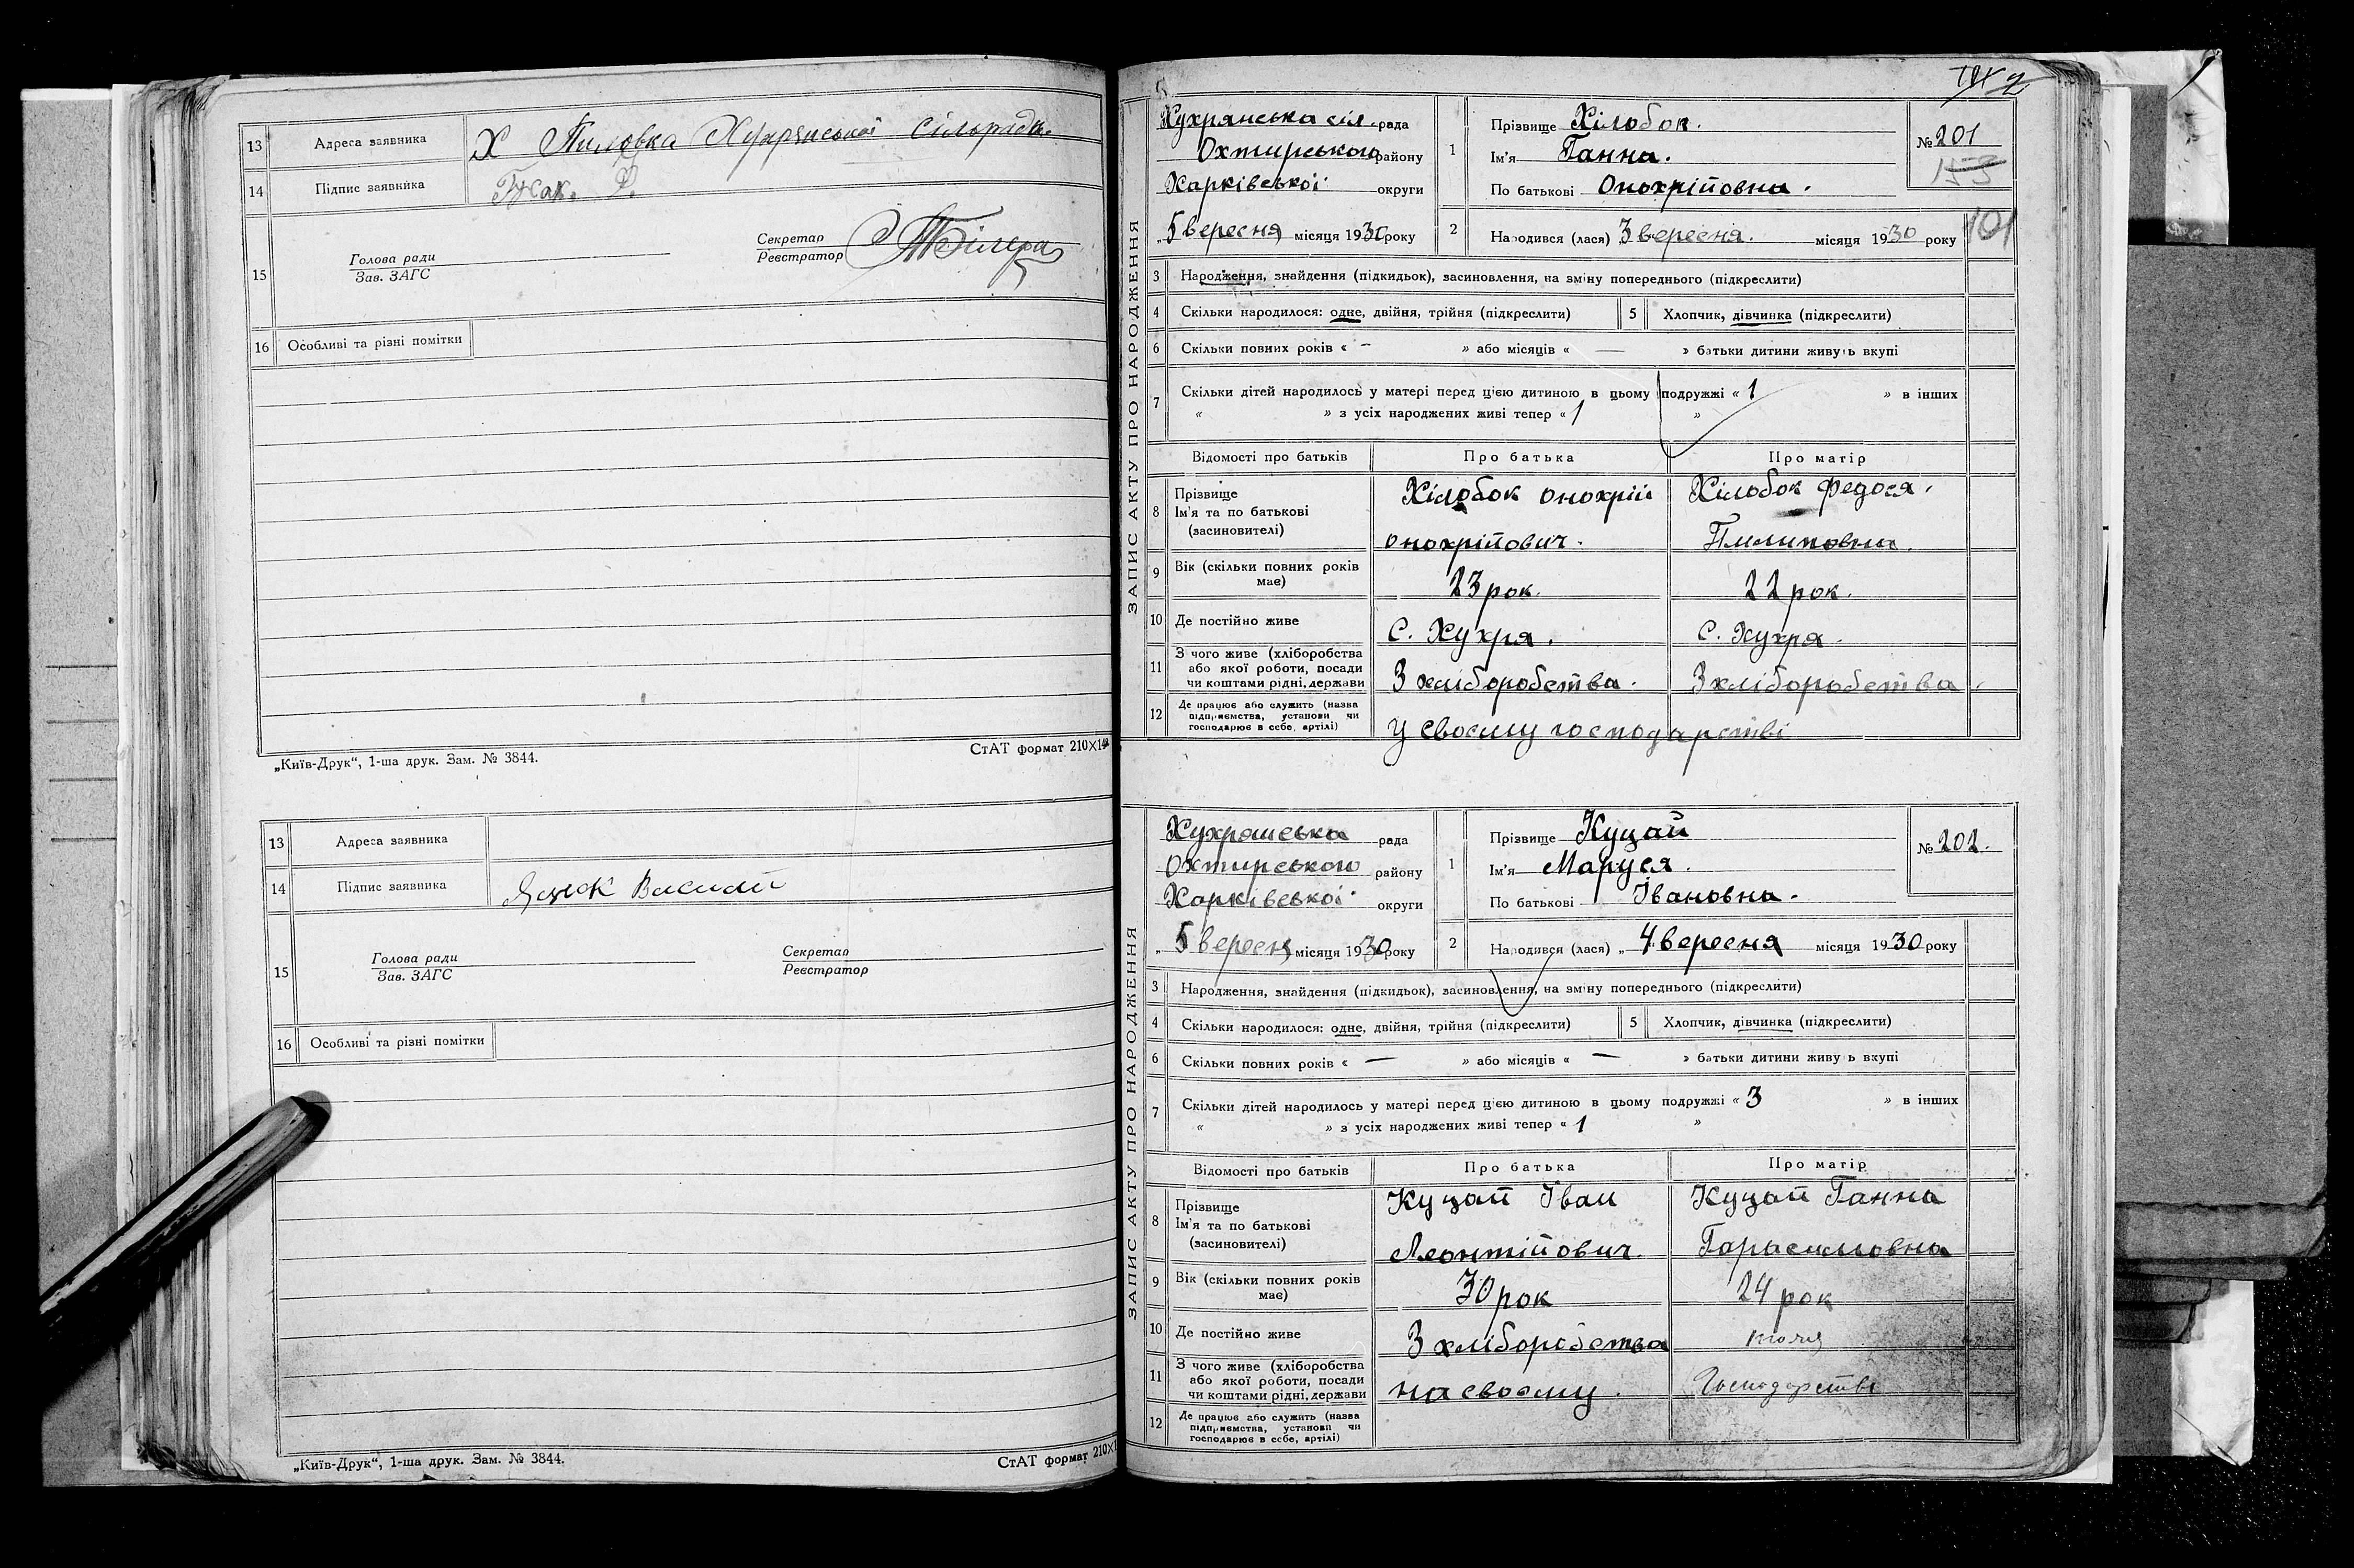 13 Адреса заявника Х Пиловка Хухрянської сільради
14 Підпис заявника
15 Голова ради
Зав. ЗАГС
Секретар
Реєстратор
16 Особливі та різні помітки
„Київ-Друк“, 1-ша друк. Зам. № 3844.
СтАТ формат 210×14
13 Адреса заявника
14 Підпис заявника Яцюк Василь
15 Голова ради
Зав. ЗАГС
Секретар
Реєстратор
16 Особливі та різні помітки
„Київ-Друк“, 1-ша друк. Зам. № 3844.
СтАТ формат 210×1
ЗАПИС АКТУ ПРО НАРОДЖЕННЯ
Хухрянська сіл. рада
Охтирського району
Харківської округи
„5 вересня місяця 1930 року
1 Прізвище Хілобок.
Ім'я Ганна.
По батькові Онохрійовна.
№ 201
153
101
2 Народився (лася) 3 вересня. місяця 1930 року
3 Народження, знайдення (підкидьок), засиновлення, на зміну попереднього (підкреслити)
4 Скільки народилося: одне, двійня, трійня (підкреслити)
5 Хлопчик, дівчинка (підкреслити)
6 Скільки повних років « — » або місяців « — » батьки дитини живуть вкупі
7 Скільки дітей народилось у матері перед цією дитиною в цьому подружжі « 1 » в інших
« » з усіх народжених живі тепер « 1 »
Відомості про батьків Про батька Про матір
8 Прізвище
Ім'я та по батькові
(засиновителі)
Хілобок Онохрій
Онохрійович.
Хілобок Федося.
Пилиповна.
9 Вік (скільки повних років має) 23 рок. 22 рок.
10 Де постійно живе С. Хухря. С. Хухря.
11 З чого живе (хліборобства
або якої роботи, посади
чи коштами рідні, держави
З хліборобства. З хліборобства.
12 Де працює або служить (назва
підприємства, установи чи
господарює в себе, артілі)
У своєму господарстві
ЗАПИС АКТУ ПРО НАРОДЖЕННЯ
Хухрянська рада
Охтирського району
Харківської округи
„5 вересня місяця 1930 року
1 Прізвище Куцай
Ім'я Маруся.
По батькові Івановна.
№ 202.
2 Народився (лася) „ 4 вересня місяця 1930 року
3 Народження, знайдення (підкидьок), засиновлення, на зміну попереднього (підкреслити)
4 Скільки народилося: одне, двійня, трійня (підкреслити)
5 Хлопчик, дівчинка (підкреслити)
6 Скільки повних років « — » або місяців « — » батьки дитини живу ь вкупі
7 Скільки дітей народилось у матері перед цією дитиною в цьому подружжі « 3 » в інших
« » з усіх народжених живі тепер « 1 »
Відомості про батьків Про батька Про матір
8 Прізвище
Ім'я та по батькові
(засиновителі)
Куцай Іван
Леонтійович.
Куцай Ганна
Гарасимовна
9 Вік (скільки повних років має) 30 рок 24 рок
10 Де постійно живе З хліборобства
11 З чого живе (хліборобства
або якої роботи, посади
чи коштами рідні, держави
на своєму. Господарстві
12 Де працює або служить (назва
підприємства, установи чи
господарює в себе, артілі)